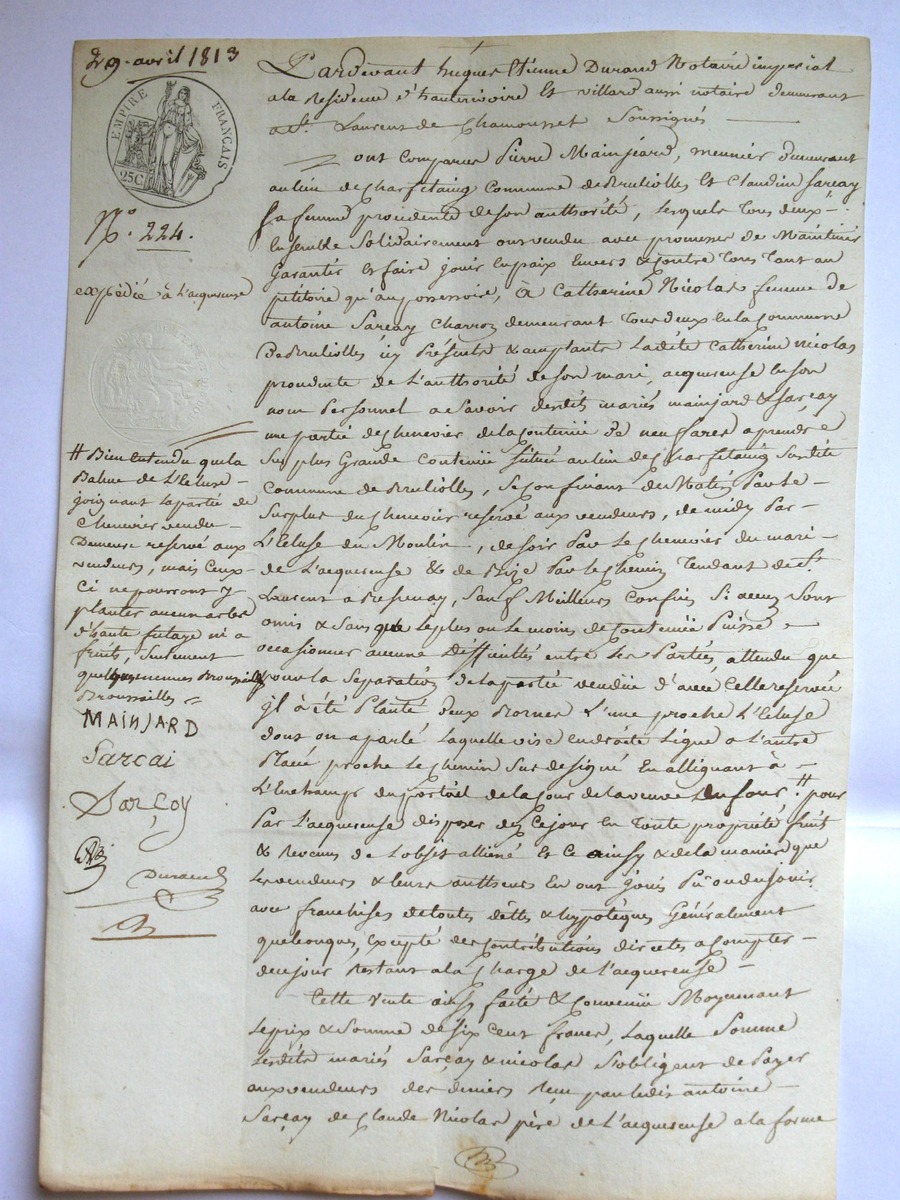 29. avril 1813
EMPIRE FRANÇAIS
25C
N.° 224.
expédié à L'acquereuse
# Bien Entendu que la
Balme de L'Ecluse
joignant la partie de
Chenevier vendu
Demeure reservé aux
vendeurs, mais Ceux-
Ci ne pourront y
planter aucun arbre
d'haute futaye ni a
fruits, Seulement
quelques
Broussailles =
MAINJARD
Sarcai
Sarcoy
Durand
Pardevant hugues Etienne Durand Notaire imperial
a la Residence d'hauterivoire Et villard aussi notaire demeurant
a St. Laurent de Chamousset Soussignés
ont Comparu Pierre Mainjard, meunier demeurant
au lieu de Charfetaing Commune de Bruliolles Et Claudine Sarcay
Sa femme procedente de Son authorité, lesquels Tous deux
Ensemble Solidairement ont vendu avec promesse de Maintenir
Garantir Et faire jouir En paix Envers & Contre Tous Tant au
petitoire qu'au possessoire, à Catherine Nicolas femme de
antoine Sarcay Charron demeurant Tous deux En la Commune
de Bruliolles icy Présents & acceptants Ladite Catherine Nicolas
procedente de L'authorité de Son mari, acquereuse En Son
nom Personnel a Savoir desdits mariés mainjard & Sarcay
une partie de Chenevier de la Contenüe de neuf ares a prendre
Sur plus Grande Contenüe Situé au lieu de Charfetaing Susdite
Commune de Bruliolles, Se Confinant de Matin Par Le
Surplus du Chenevier reservé aux vendeurs, de midy Par
L'Ecluse du Moulin, de Soir Par Le Chenevier du mari
de L'acquereuse & de Bize Par Le Chemin Tendant de St.
Laurent a Bessenay, Sauf Meilleurs Confins Si aucuns Sont
omis & Sans que Le plus ou Le moins de Contenüe Puisse
occasionner aucune difficultés entre Les Parties, attendu que
pour la Separation de la partie vendüe d'avec Celle reservée
il à été Planté deux Bornes L'une proche L'Ecluse
dont on a parlé Laquelle vise En droite Ligne a L'autre
Placée proche Le Chemin Sus designé En alliguant à
L'Enchamp du portail de la Cour de la veuve Dufour # pour
Par L'acquereuse disposer dez Ce jour En Toute propriété fruit
& Revenus de L'objet alliené Et Ce ainsy & de la maniere que
Les vendeurs & leurs autheurs En ont jouis Pû ou dû jouir
avec franchises de toutes dêttes & hypotèques Généralement
quelconques, Excepté des Contributions directes a Compter
de ce jour Restant a la Charge de L'acquereuse
Cette Vente ainsy faite & Convenüe Moyennant
Le prix & Somme de Six Cent francs, Laquelle Somme
Lesdits mariés Sarçay & nicolas S'obligent de Payer
aux vendeurs des deniers reçu par ledit antoine
Sarçay de Claude Nicolas père de L'acquereuse a la forme